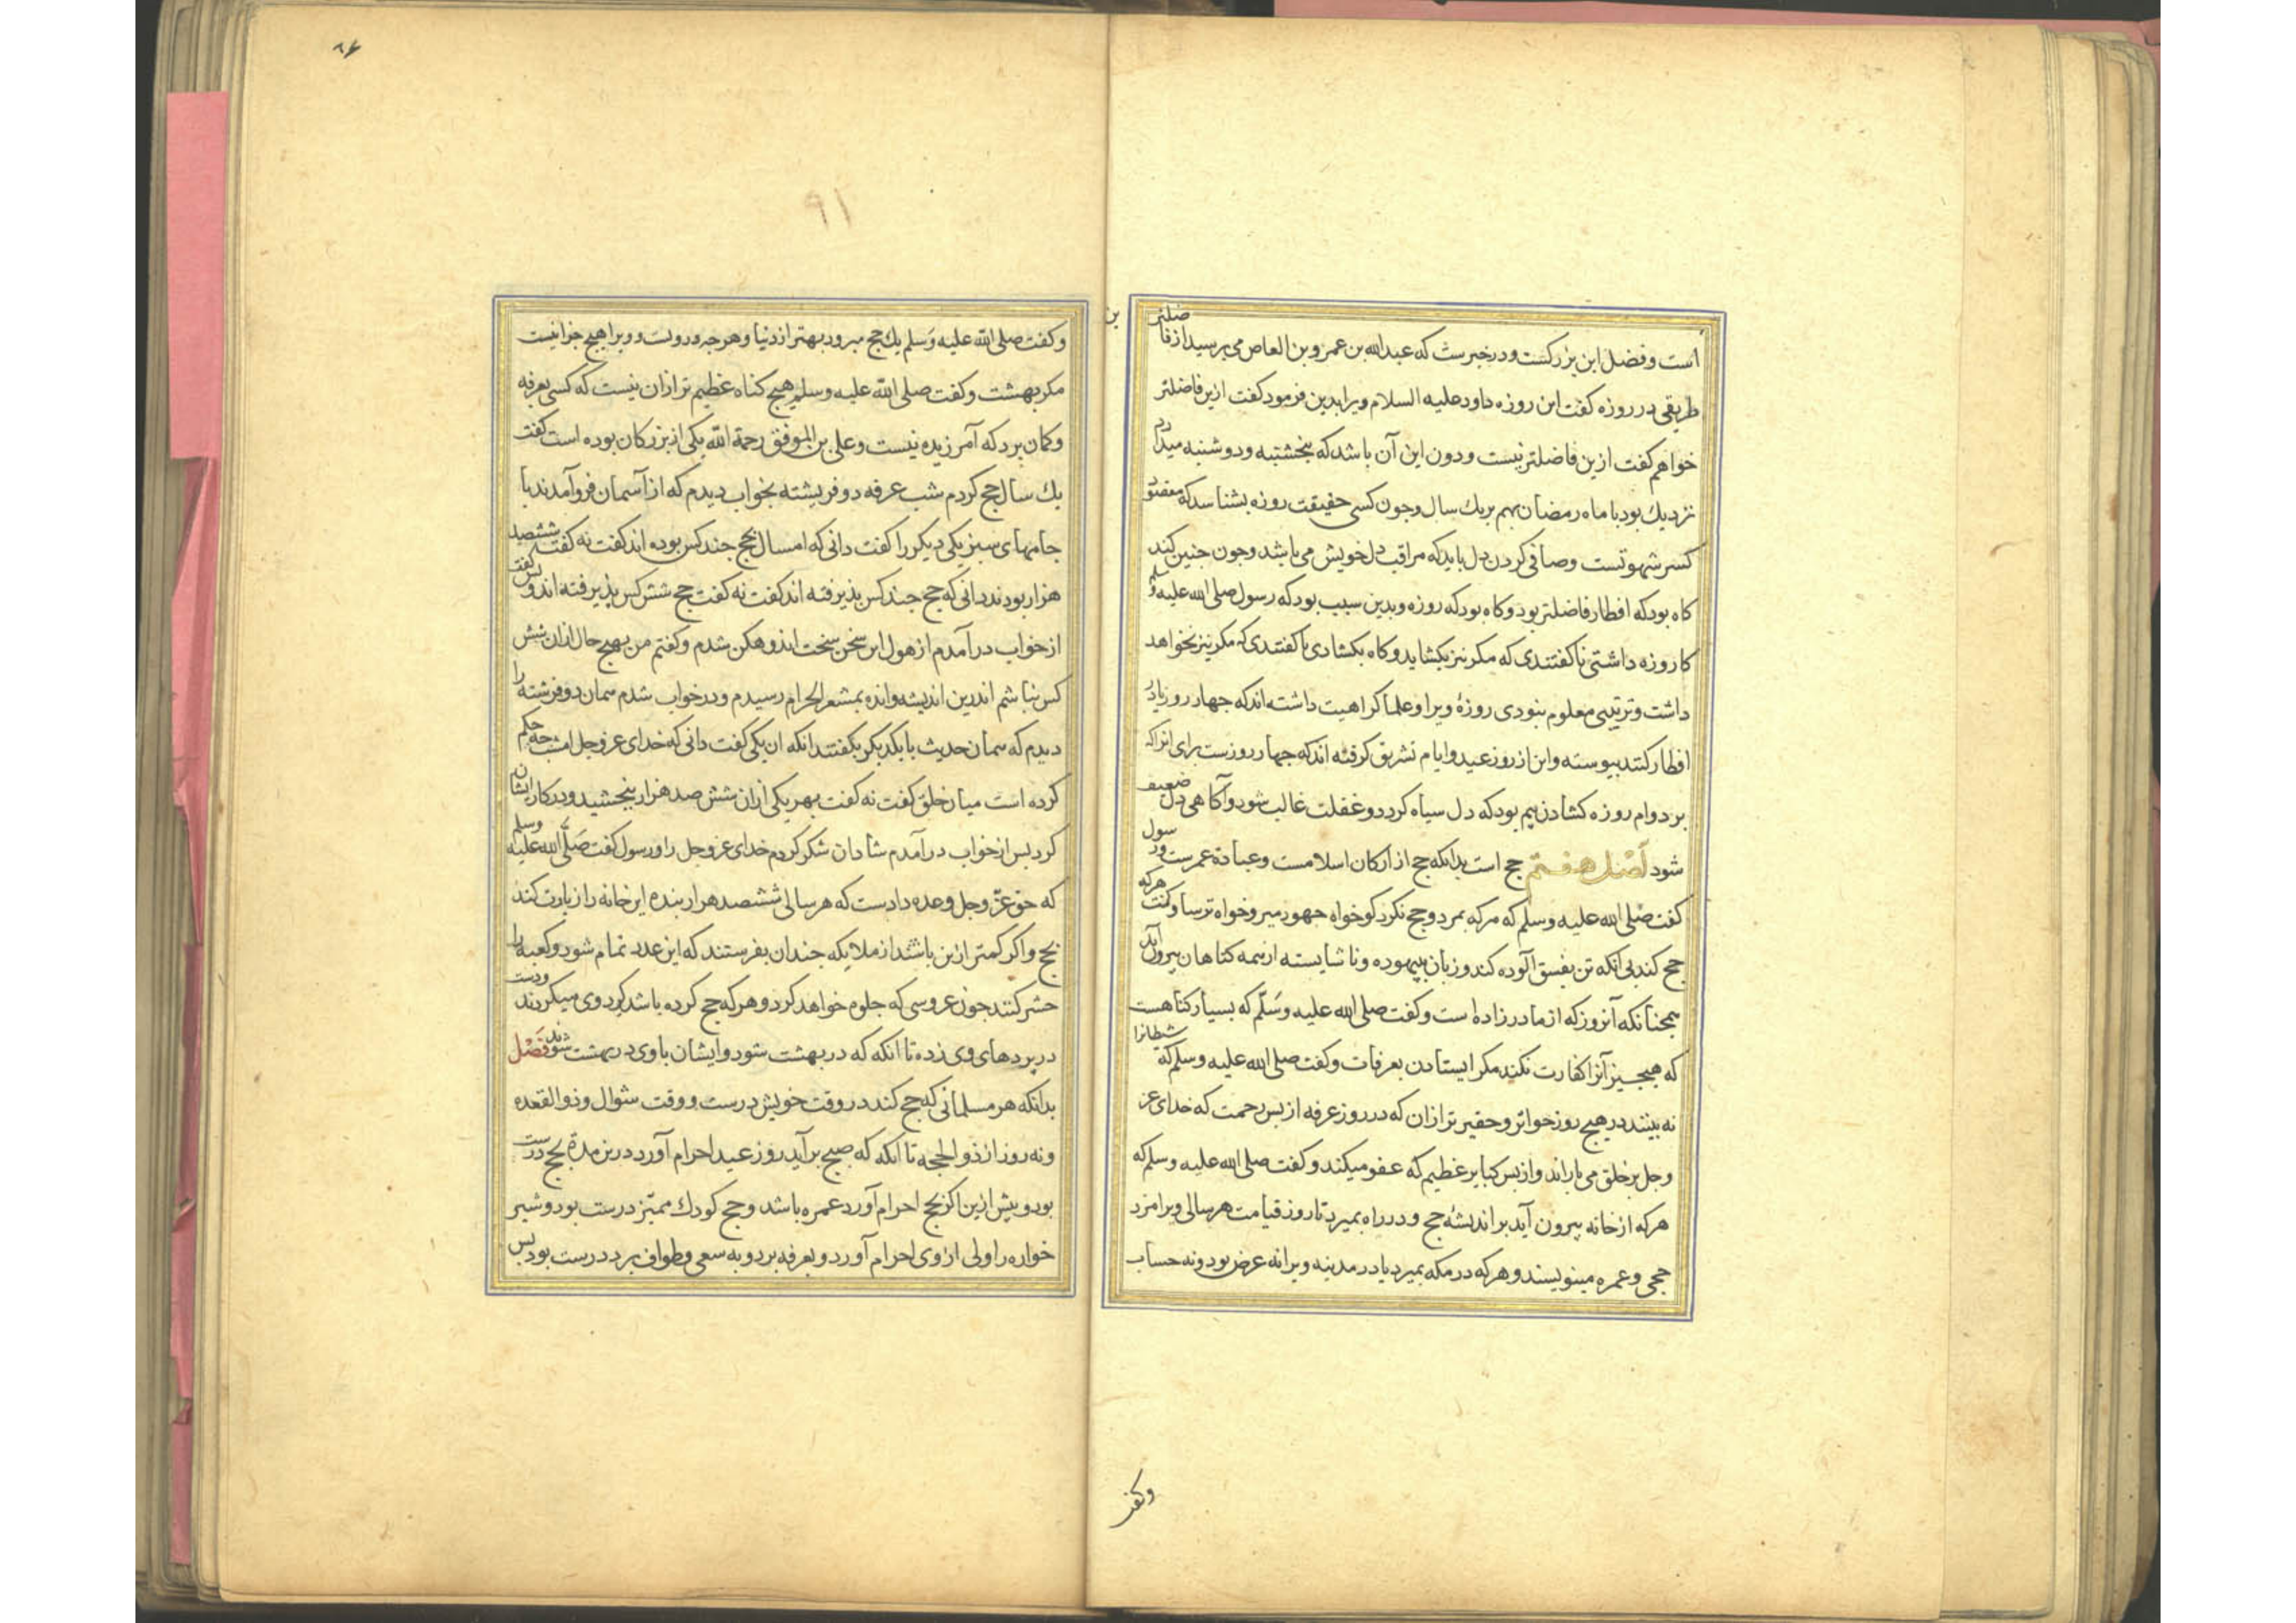 است و فضل این بزرکست و در خبرست که عبدالله بن عمرو بن العاص می پرسید از فاضلتر
طریقی در روزه کفت این روزه داود علیه السلام ویرا بدین فرمود کفت ازین فاضلتر
خواهم کفت ازین فاضلتر نیست و دون این آن باشد که پنجشنبه و دوشنبه میدارد
نزدیك بود با ماه رمضان بهم بریك سال وجون کسی حقیقت روزه بشناسد که مقصود
کسر شهوتست وصافی کردن دل باید که مراقب دل خویش می باشد وجون جنین کند
کاه بود که افطار فاضلتر بود وکاه بود که روزه وبدین سبب بود که رسول صلی الله علیه وسلم
کا روزه داشتی تا کفتندی که مکر نیز نکشاید وکاه بکشادی تا کفتندی که مکر نیز نخواهد
داشت وترتیبی معلوم نبودی روزهٔ ویرا وعلما کراهیت داشته اند که جهار روز زیادت
افطار کنند پیوسته واین از روز عید وایام تشریق کرفته اند که جهار روزست برای انرا که
بر دوام روزه کشادن بیم بود که دل سیاه کردد وغفلت غالب شود وآکاهی دل ضعیف
شود اَصْل هفتم حج است بدانکه حج از ارکان اسلامست وعبادة عمرست ورسول
کفت صلی الله علیه وسلم که هرکه بمرد وحج نکرد کو خواه جهود میر وخواه ترسا وکفت هرکه
حج کند بی انکه تن بفسق آلوده کند وزبان بیهوده وناشایسته ازهمه کناهان بیرون آید
همجنانکه آنروز که از مادر زاده است وکفت صلی الله علیه وسلّم که بسیار کناهست
که هیجیز آنرا کفارت نکند مکر ایستادن بعرفات وکفت صلی الله علیه وسلم که شیطانرا
نه بینند در هیج روز خوارتر وحقیرتر ازان که در روز عرفه از بس رحمت که خدای عز
وجل بر خلق می باراند واز بس کبایر عظیم که عفو میکند وکفت صلی الله علیه وسلم که
هرکه از خانه بیرون آید بر اندیشهٔ حج ودر راه بمیرد تا روز قیامت هر سالی ویرا مزد
حجی وعمره مینویسند وهرکه در مکه بمیرد یا در مدینه ویرا نه عرض بود ونه حساب
وکفت
۸۶
۹۱
وکفت صلی الله علیه وَسلم یك حج مبرور بهتر از دنیا وهرجه دروست وویرا هیج جزا نیست
مکر بهشت وکفت صلی الله علیه وسلم هیج کناه عظیم تر ازان نیست که کسی بعرفه
وکمان برد که آمرزیده نیست وعلی بن الموفق رحمة الله یکی از بزرکان بوده است کفت
یك سال حج کردم شب عرفه دو فریشته بخواب دیدم که از آسمان فرو آمدند با
جامهای سبز یکی دیکر را کفت دانی که امسال بحج جند کس بوده اند کفت نه کفت ششصد
هزار بودند دانی که حج جند کس پذیرفته اند کفت نه کفت حج شش کس پذیرفته اند وبس کفت
از خواب درآمدم از هول این سخن سخت اندوهکن شدم وکفتم من بهیج حال ازان شش
کس نباشم اندرین اندیشه واندوه بمشعر الحرام رسیدم ودر خواب شدم همان دو فرشته را
دیدم که همان حدیث با یکدیکر بکفتند انکه ان یکی کفت دانی که خدای عز وجل امشب جه حکم
کرده است میان خلق کفت نه کفت بهر یکی ازان شش صد هزار ببخشید ودر کار ایشان
کرد پس از خواب درآمدم شادان شکر کردم خدای عز وجل را ورسول کفت صَلّی الله علیه وسلم
که حق عزّ وجل وعده دادست که هر سالی ششصد هزار بنده این خانه را زیارت کند
بحج واکر کمتر ازین باشند از ملایکه جندان بفرستند که این عدد تمام شود وکعبه را
حشر کنند جون عروسی که جلوه خواهد کرد وهرکه حج کرده باشد کرد وی میکردند ودست
در پردهای وی زده تا انکه که در بهشت شود وایشان باوی در بهشت شوند فَصْل
بدانکه هر مسلمانی که حج کند در وقت خویش درست ووقت شوال وذوالقعده
ونه روز از ذوالحجه تا انکه که صبح برآید روز عید احرام آورد درین مدة بحج درست
بود وپیش ازین اکر بحج احرام آورد عمره باشد وحج کودك ممیّز درست بود وشیر
خواره را ولی از وی احرام آورد وبعرفه برد وبه سعی وطواف برد درست بود پس